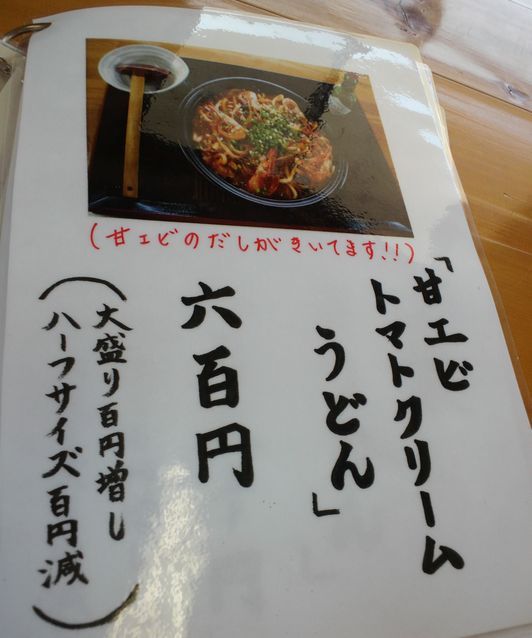 (甘エビのだしがきいてます!!)
「甘エビ
トマトクリーム
うどん」
六百円
(大盛り百円増し
ハーフサイズ百円減)